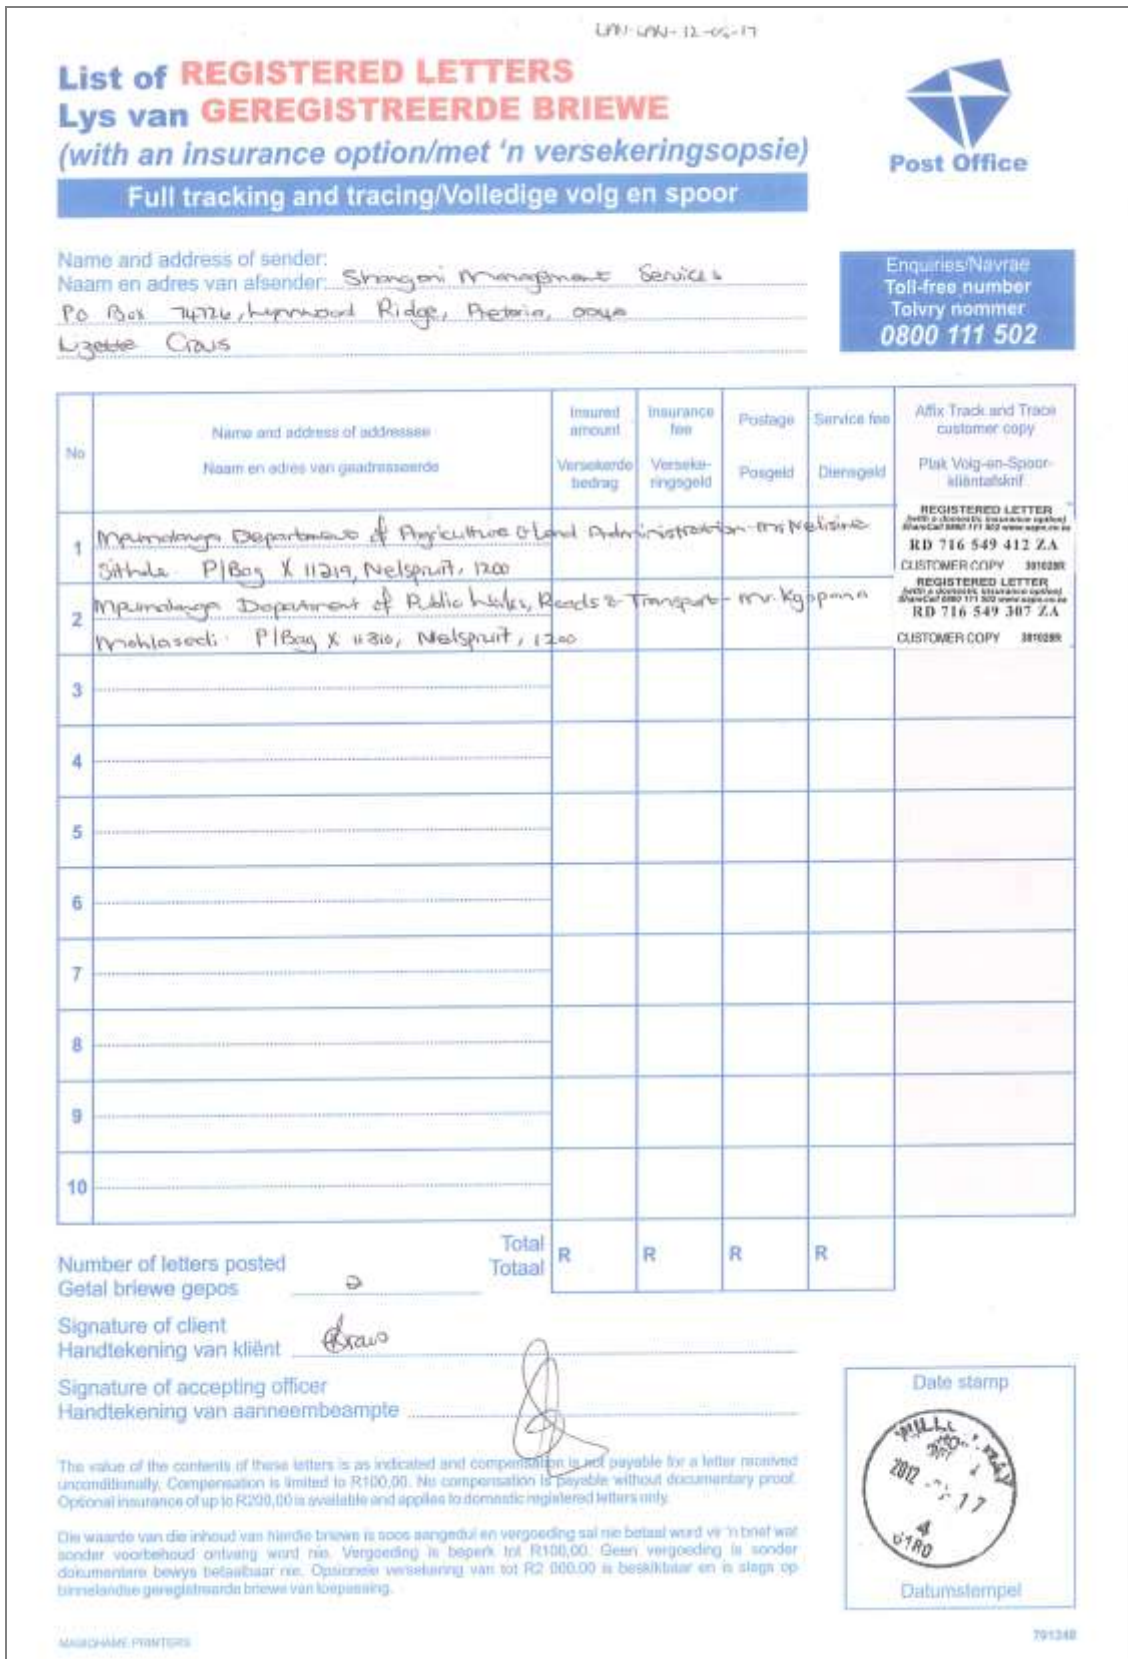 LAN-LAN-12-05-17
List of REGISTERED LETTERS
Lys van GEREGISTREERDE BRIEWE
(with an insurance option/met 'n versekeringsopsie)
Full tracking and tracing/Volledige volg en spoor
Post Office
Name and address of sender:
Naam en adres van afsender: Shangoni Management Services
PO Box 74726, Lynnwood Ridge, Pretoria, 0040
Lizette Crous
Enquiries/Navrae
Toll-free number
Tolvry nommer
0800 111 502
No
Name and address of addressee
Naam en adres van geadresseerde
Insured amount
Versekerde bedrag
Insurance fee
Verseke-ringsgeld
Postage
Posgeld
Service fee
Diensgeld
Affix Track and Trace customer copy
Plak Volg-en-Spoor-kliëntafskrif
1 Mpumalanga Department of Agriculture & Land Administration - Mr Nelisiwe
Sithole. P/Bag X 11219, Nelspruit, 1200
REGISTERED LETTER
(with a domestic insurance option)
ShareCall 0860 111 502 www.sapo.co.za
RD 716 549 412 ZA
CUSTOMER COPY 301028R
2 Mpumalanga Department of Public Works, Roads & Transport - Mr. Kgopana
Mohlasedi. P/Bag X 11310, Nelspruit, 1200
REGISTERED LETTER
(with a domestic insurance option)
ShareCall 0860 111 502 www.sapo.co.za
RD 716 549 307 ZA
CUSTOMER COPY 301028R
3
4
5
6
7
8
9
10
Total
Totaal
R R R R
Number of letters posted
Getal briewe gepos 2
Signature of client
Handtekening van kliënt Crous
Signature of accepting officer
Handtekening van aanneembeampte
The value of the contents of these letters is as indicated and compensation is not payable for a letter received
unconditionally. Compensation is limited to R100,00. No compensation is payable without documentary proof.
Optional insurance of up to R200,00 is available and applies to domestic registered letters only.
Die waarde van die inhoud van hierdie briewe is soos aangedui en vergoeding sal nie betaal word vir 'n brief wat
sonder voorbehoud ontvang word nie. Vergoeding is beperk tot R100,00. Geen vergoeding is sonder
dokumentêre bewys betaalbaar nie. Opsionele versekering van tot R2 000.00 is beskikbaar en is slegs op
binnelandse geregistreerde briewe van toepassing.
Date stamp
2012
17
4
0180
Datumstempel
PRINTERS
791248